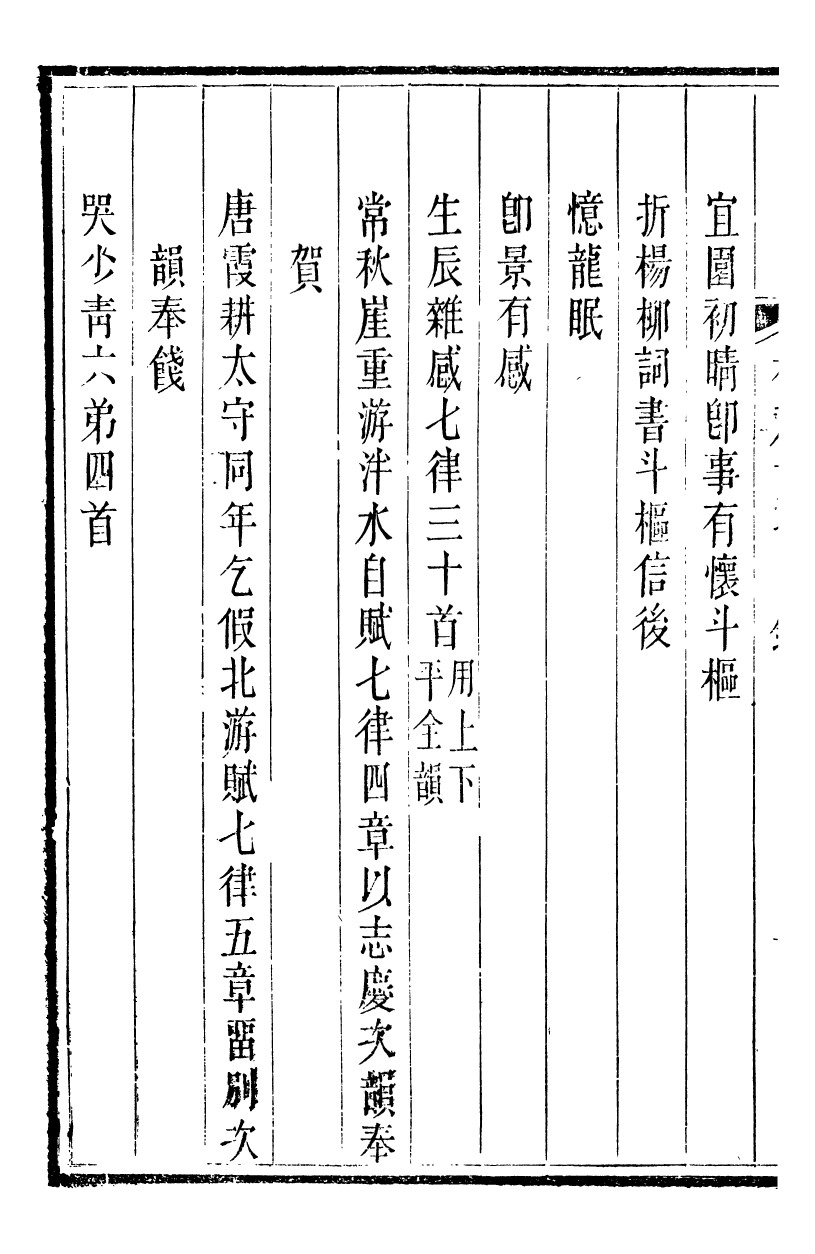 宜園初晴卽事有懷斗樞
折楊柳詞書斗樞信後
憶龍眠
卽景有感
生辰雜感七律三十首用上下平全韻
常秋崖重游泮水自賦七律四章以志慶次韻奉
賀
唐霞耕太守同年乞假北游賦七律五章畱別次
韻奉餞
哭少靑六弟四首